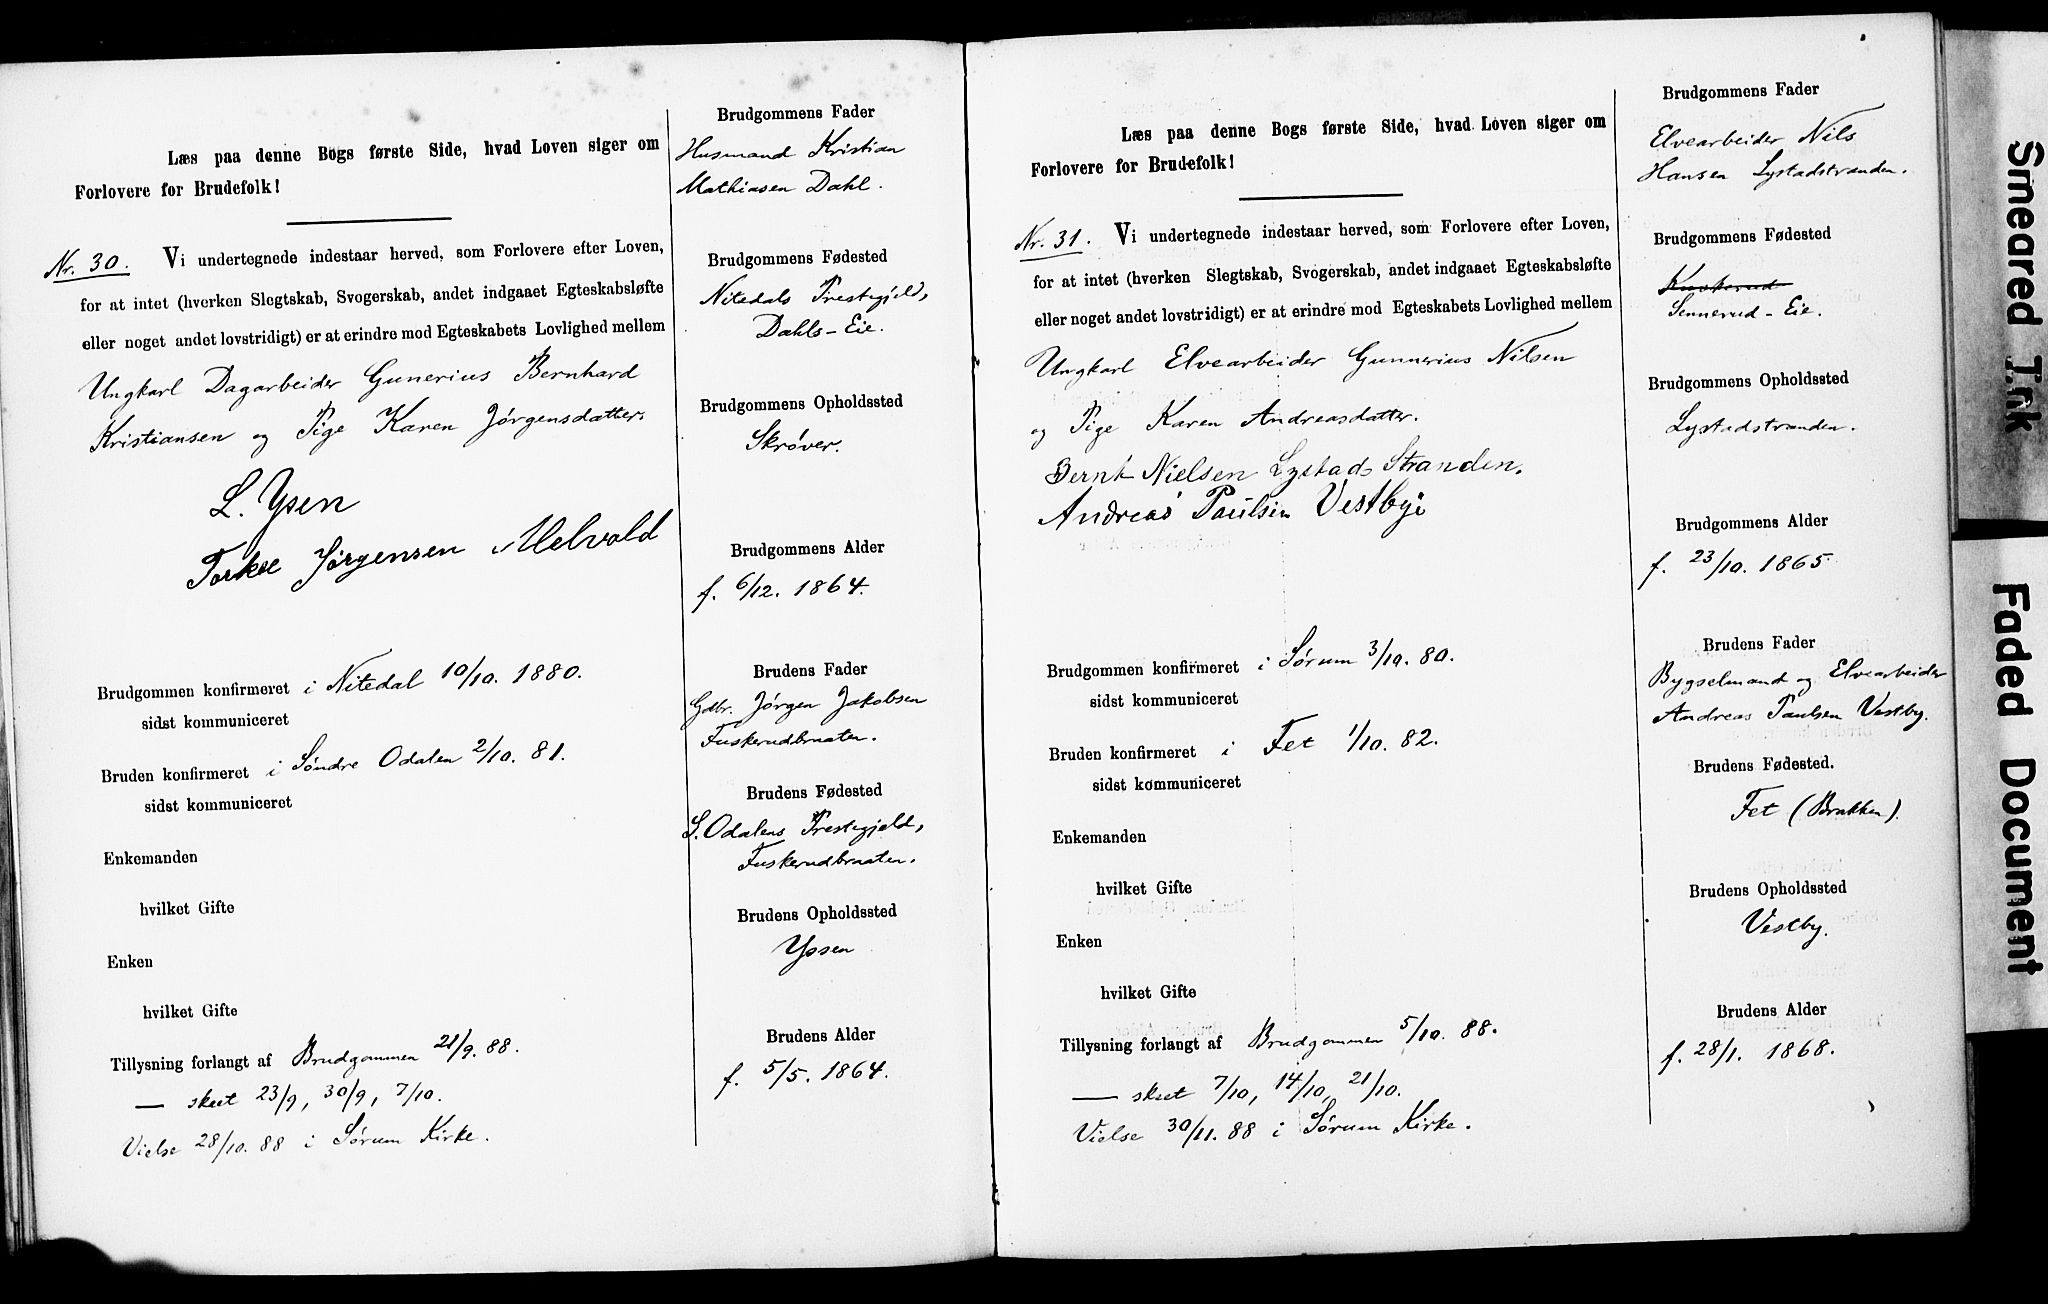 Læs paa denne Bogs første Side, hvad Loven siger om
Forlovere for Brudefolk!
Nr. 30. Vi undertegnede indestaar herved, som Forlovere efter Loven,
for at intet (hverken Slegtskab, Svogerskab, andet indgaaet Egteskabsløfte
eller noget andet lovstridigt) er at erindre mod Egteskabets Lovlighed mellem
Ungkarl Dagarbeider Gunerius Bernhard
Kristiansen og Pige Karen Jørgensdatter.
L. Ysen
Torkel Jørgensen Melvold
Brudgommen konfirmeret i Nitedal 10/10. 1880.
sidst kommuniceret
Bruden konfirmeret i Søndre Odalen 2/10. 81.
sidst kommuniceret
Enkemanden
hvilket Gifte
Enken
hvilket Gifte
Tillysning forlangt af Brudgommen 21/9. 88.
— skeet 23/9, 30/9, 7/10.
Vielse 28/10. 88 i Sørum Kirke.
Brudgommens Fader
Husmand Kristian
Mathiasen Dahl.
Brudgommens Fødested
Nitedals Prestegjeld,
Dahls-Eie.
Brudgommens Opholdssted
Skrøver.
Brudgommens Alder
f. 6/12. 1864.
Brudens Fader
Gdbr. Jørgen Jakobsen
Fuskerudbraaten.
Brudens Fødested
S. Odalens Prestegjeld,
Fuskerudbraaten.
Brudens Opholdssted
Yssen
Brudens Alder
f. 5/5. 1864.
Læs paa denne Bogs første Side, hvad Loven siger om
Forlovere for Brudefolk!
Nr. 31. Vi undertegnede indestaar herved, som Forlovere efter Loven,
for at intet (hverken Slegtskab, Svogerskab, andet indgaaet Egteskabsløfte
eller noget andet lovstridigt) er at erindre mod Egteskabets Lovlighed mellem
Ungkarl Elvearbeider Gunnerius Nilsen
og Pige Karen Andreasdatter.
Bernt Nielsen Lystad Stranden.
Andreas Paulsen Vestbye
Brudgommen konfirmeret i Sørum 3/10. 80.
sidst kommuniceret
Bruden konfirmeret i Fet 1/10. 82.
sidst kommuniceret
Enkemanden
hvilket Gifte
Enken
hvilket Gifte
Tillysning forlangt af Brudgommen 5/10. 88.
— skeet 7/10, 14/10, 21/10.
Vielse 30/11. 88 i Sørum Kirke.
Brudgommens Fader
Elvearbeider Nils
Hansen Lystadstranden.
Brudgommens Fødested
Sennerud-Eie.
Brudgommens Opholdssted
Lystadstranden.
Brudgommens Alder
f. 23/10. 1865.
Brudens Fader
Bygselmand og Elvearbeider
Andreas Paulsen Vestby.
Brudens Fødested.
Fet (Brakken).
Brudens Opholdssted
Vestby.
Brudens Alder
f. 28/1. 1868.
Smeared Ink
Faded Document